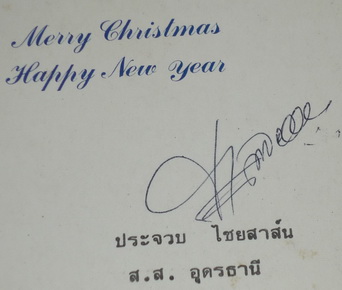 Merry Christmas
Happy New Year
ประจวบ ไชยสาส์น
ส.ส. อุดรธานี